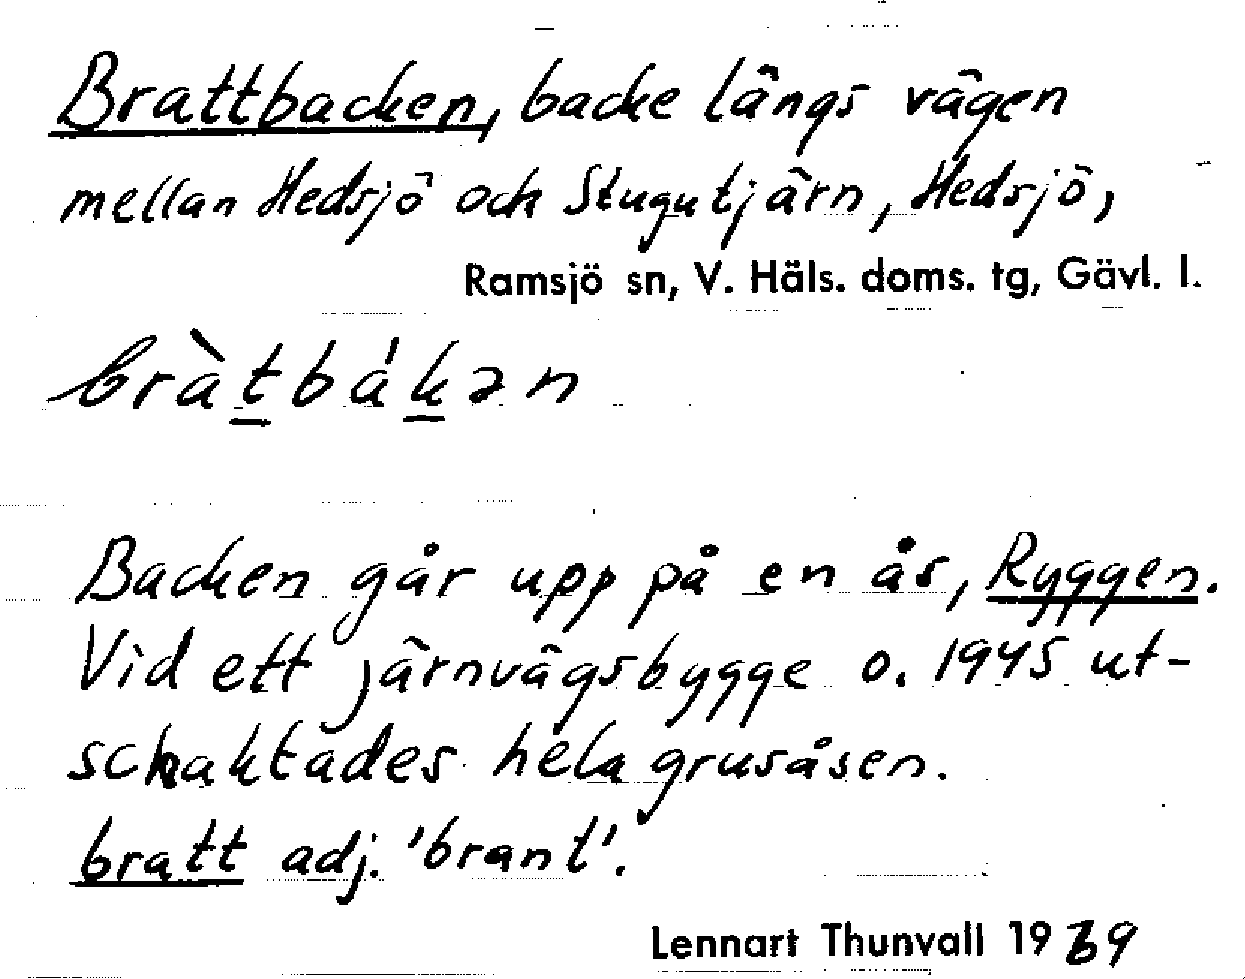 Brattbacken, backe längs vägen
mellan Hedsjö och Stugutjärn, Hedsjö,
Ramsjö sn, V. Häls. doms. tg, Gävl. l.
bràt̲bák̲ən
Backen går upp på en ås, Ryggen.
Vid ett järnvägsbygge o. 1945 ut-
schaktades hela grusåsen.
bratt adj. 'brant'.
Lennart Thunvall 1969